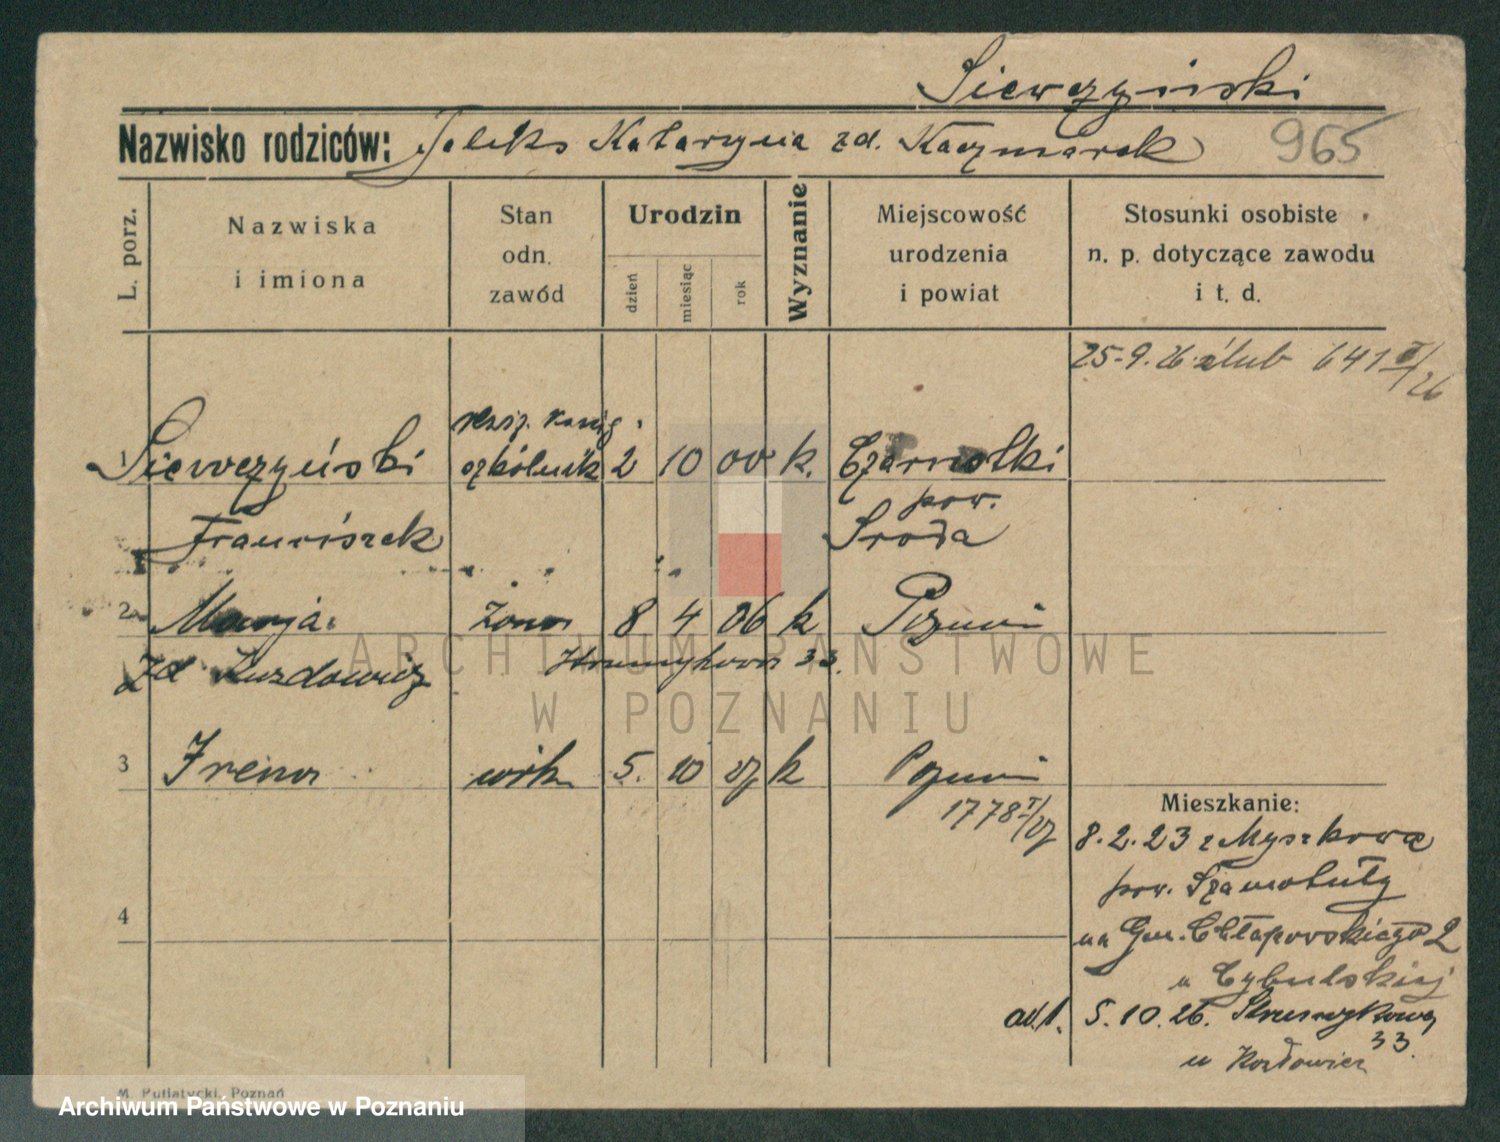 Siewczyński
Nazwisko rodziców: Feliks Katarzyna zd. Kaczmarek 965
L. porz.
Nazwiska i imiona
Stan odn. zawód
Urodzin
dzień miesiąc rok
Wyznanie
Miejscowość urodzenia i powiat
Stosunki osobiste n. p. dotyczące zawodu i t. d.
25-9.26 ślub 641 /26
1 Siewczyński szkólnik 2 10 00 k. Czarnotki
pow.
Franciszek Środa
2 Marja żona 8 4 06 k Poznań
zd 33.
3 Irena 5. 10 27 k Poznań
1778 I/27
Mieszkanie:
8.2.23 z Myszkowa
pow. Szamotuły
na Gen. Chłapowskiego 2
u Cybulskiej
ad 1. 5.10.26. Strumykowa
33.
u
4
M. Putiatycki, Poznań
ARCHIWUM PAŃSTWOWE
W POZNANIU
Archiwum Państwowe w Poznaniu